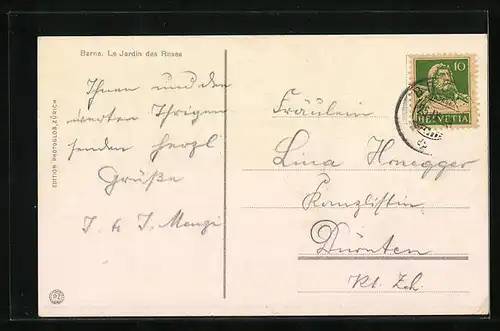 Berne. Le Jardin des Roses
Ihnen und den
werten Ihrigen
senden herzl
Grüße
J. & J. Menzi
EDITION PHOTOGLOB, ZÜRICH
10
HELVETIA
Fräulein
Lina Honegger
Kanzlistin
Dürnten
Kt. Zch.